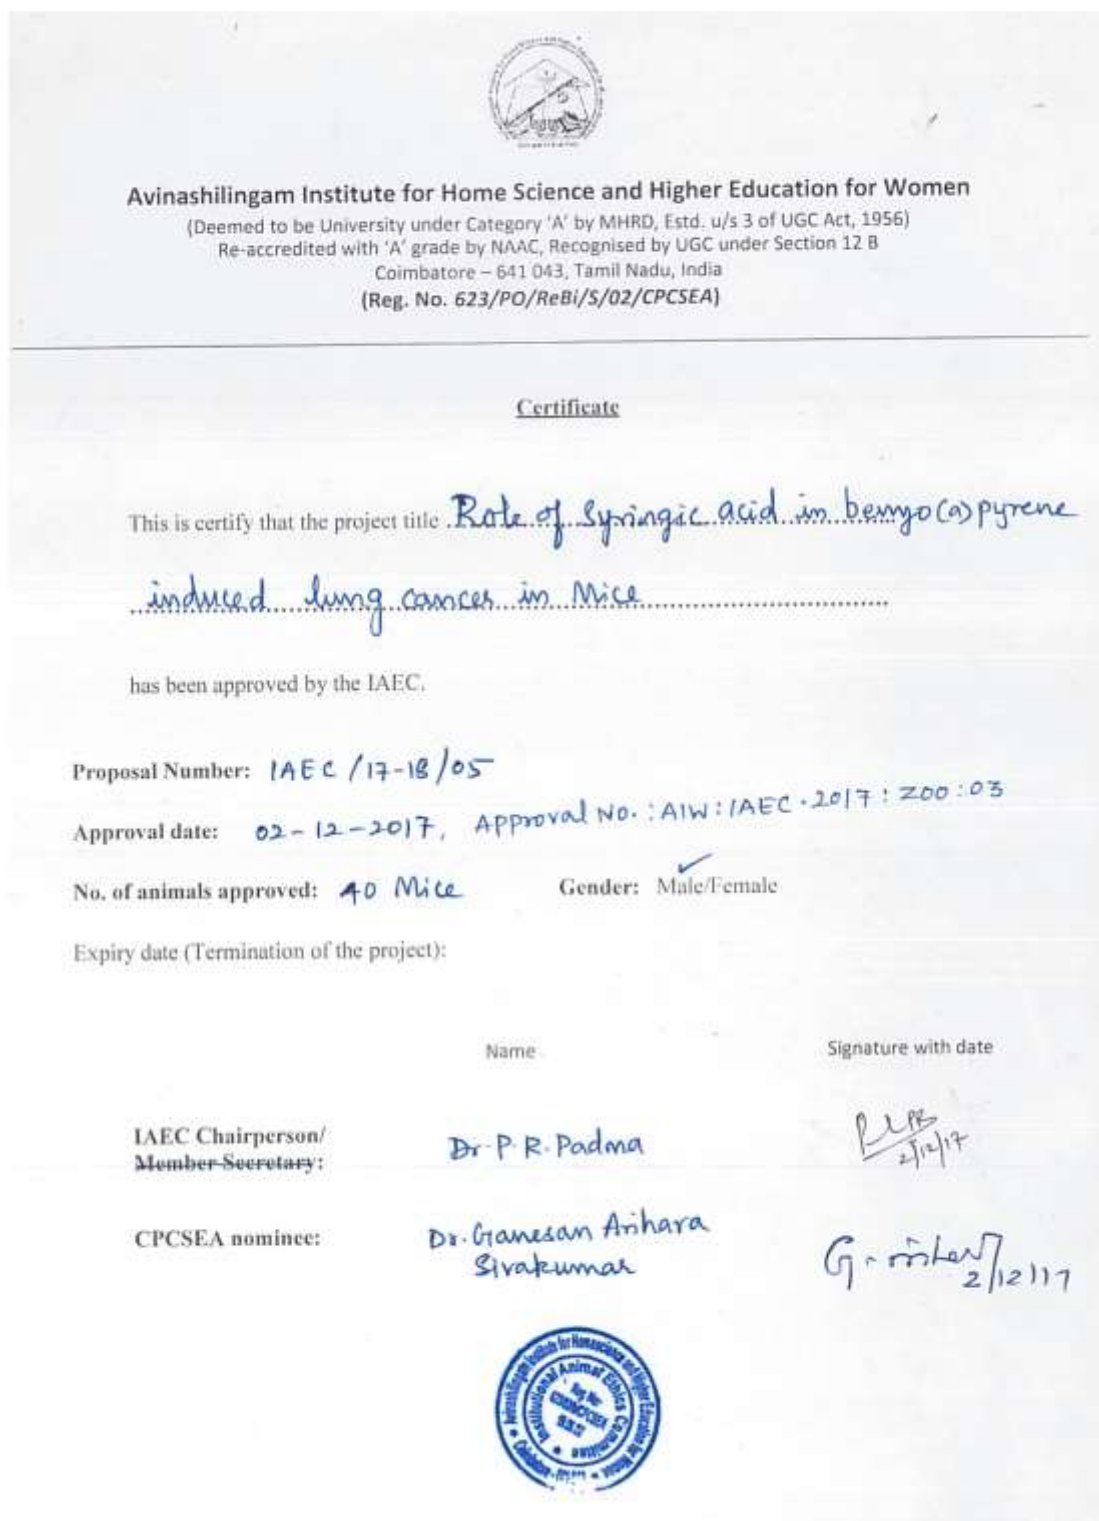 Avinashilingam Institute for Home Science and Higher Education for Women
(Deemed to be University under Category 'A' by MHRD, Estd. u/s 3 of UGC Act, 1956)
Re-accredited with 'A' grade by NAAC, Recognised by UGC under Section 12 B
Coimbatore – 641 043, Tamil Nadu, India
(Reg. No. 623/PO/ReBi/S/02/CPCSEA)
Certificate
This is certify that the project title Role of Syringic acid in benzo(a)pyrene
induced lung cancer in Mice
has been approved by the IAEC.
Proposal Number: IAEC/17-18/05
Approval date: 02-12-2017, Approval No.: AIW:IAEC.2017:ZOO:03
No. of animals approved: 40 Mice Gender: Male/Female
Expiry date (Termination of the project):
Name Signature with date
IAEC Chairperson/
Member Secretary: Dr. P. R. Padma 2/12/17
CPCSEA nominee: Dr. Ganesan Arihara
Sivakumar 2/12/17
Avinashilingam Institute for Homescience and Higher Education for Women
Institutional Animal Ethics Committee